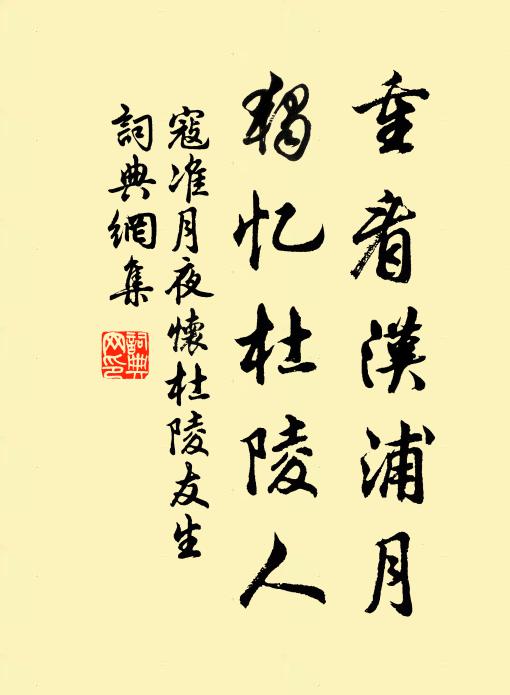 重看漢浦月
獨忆杜陵人
寇准月夜懷杜陵友生
詞典網集
詞典
网印